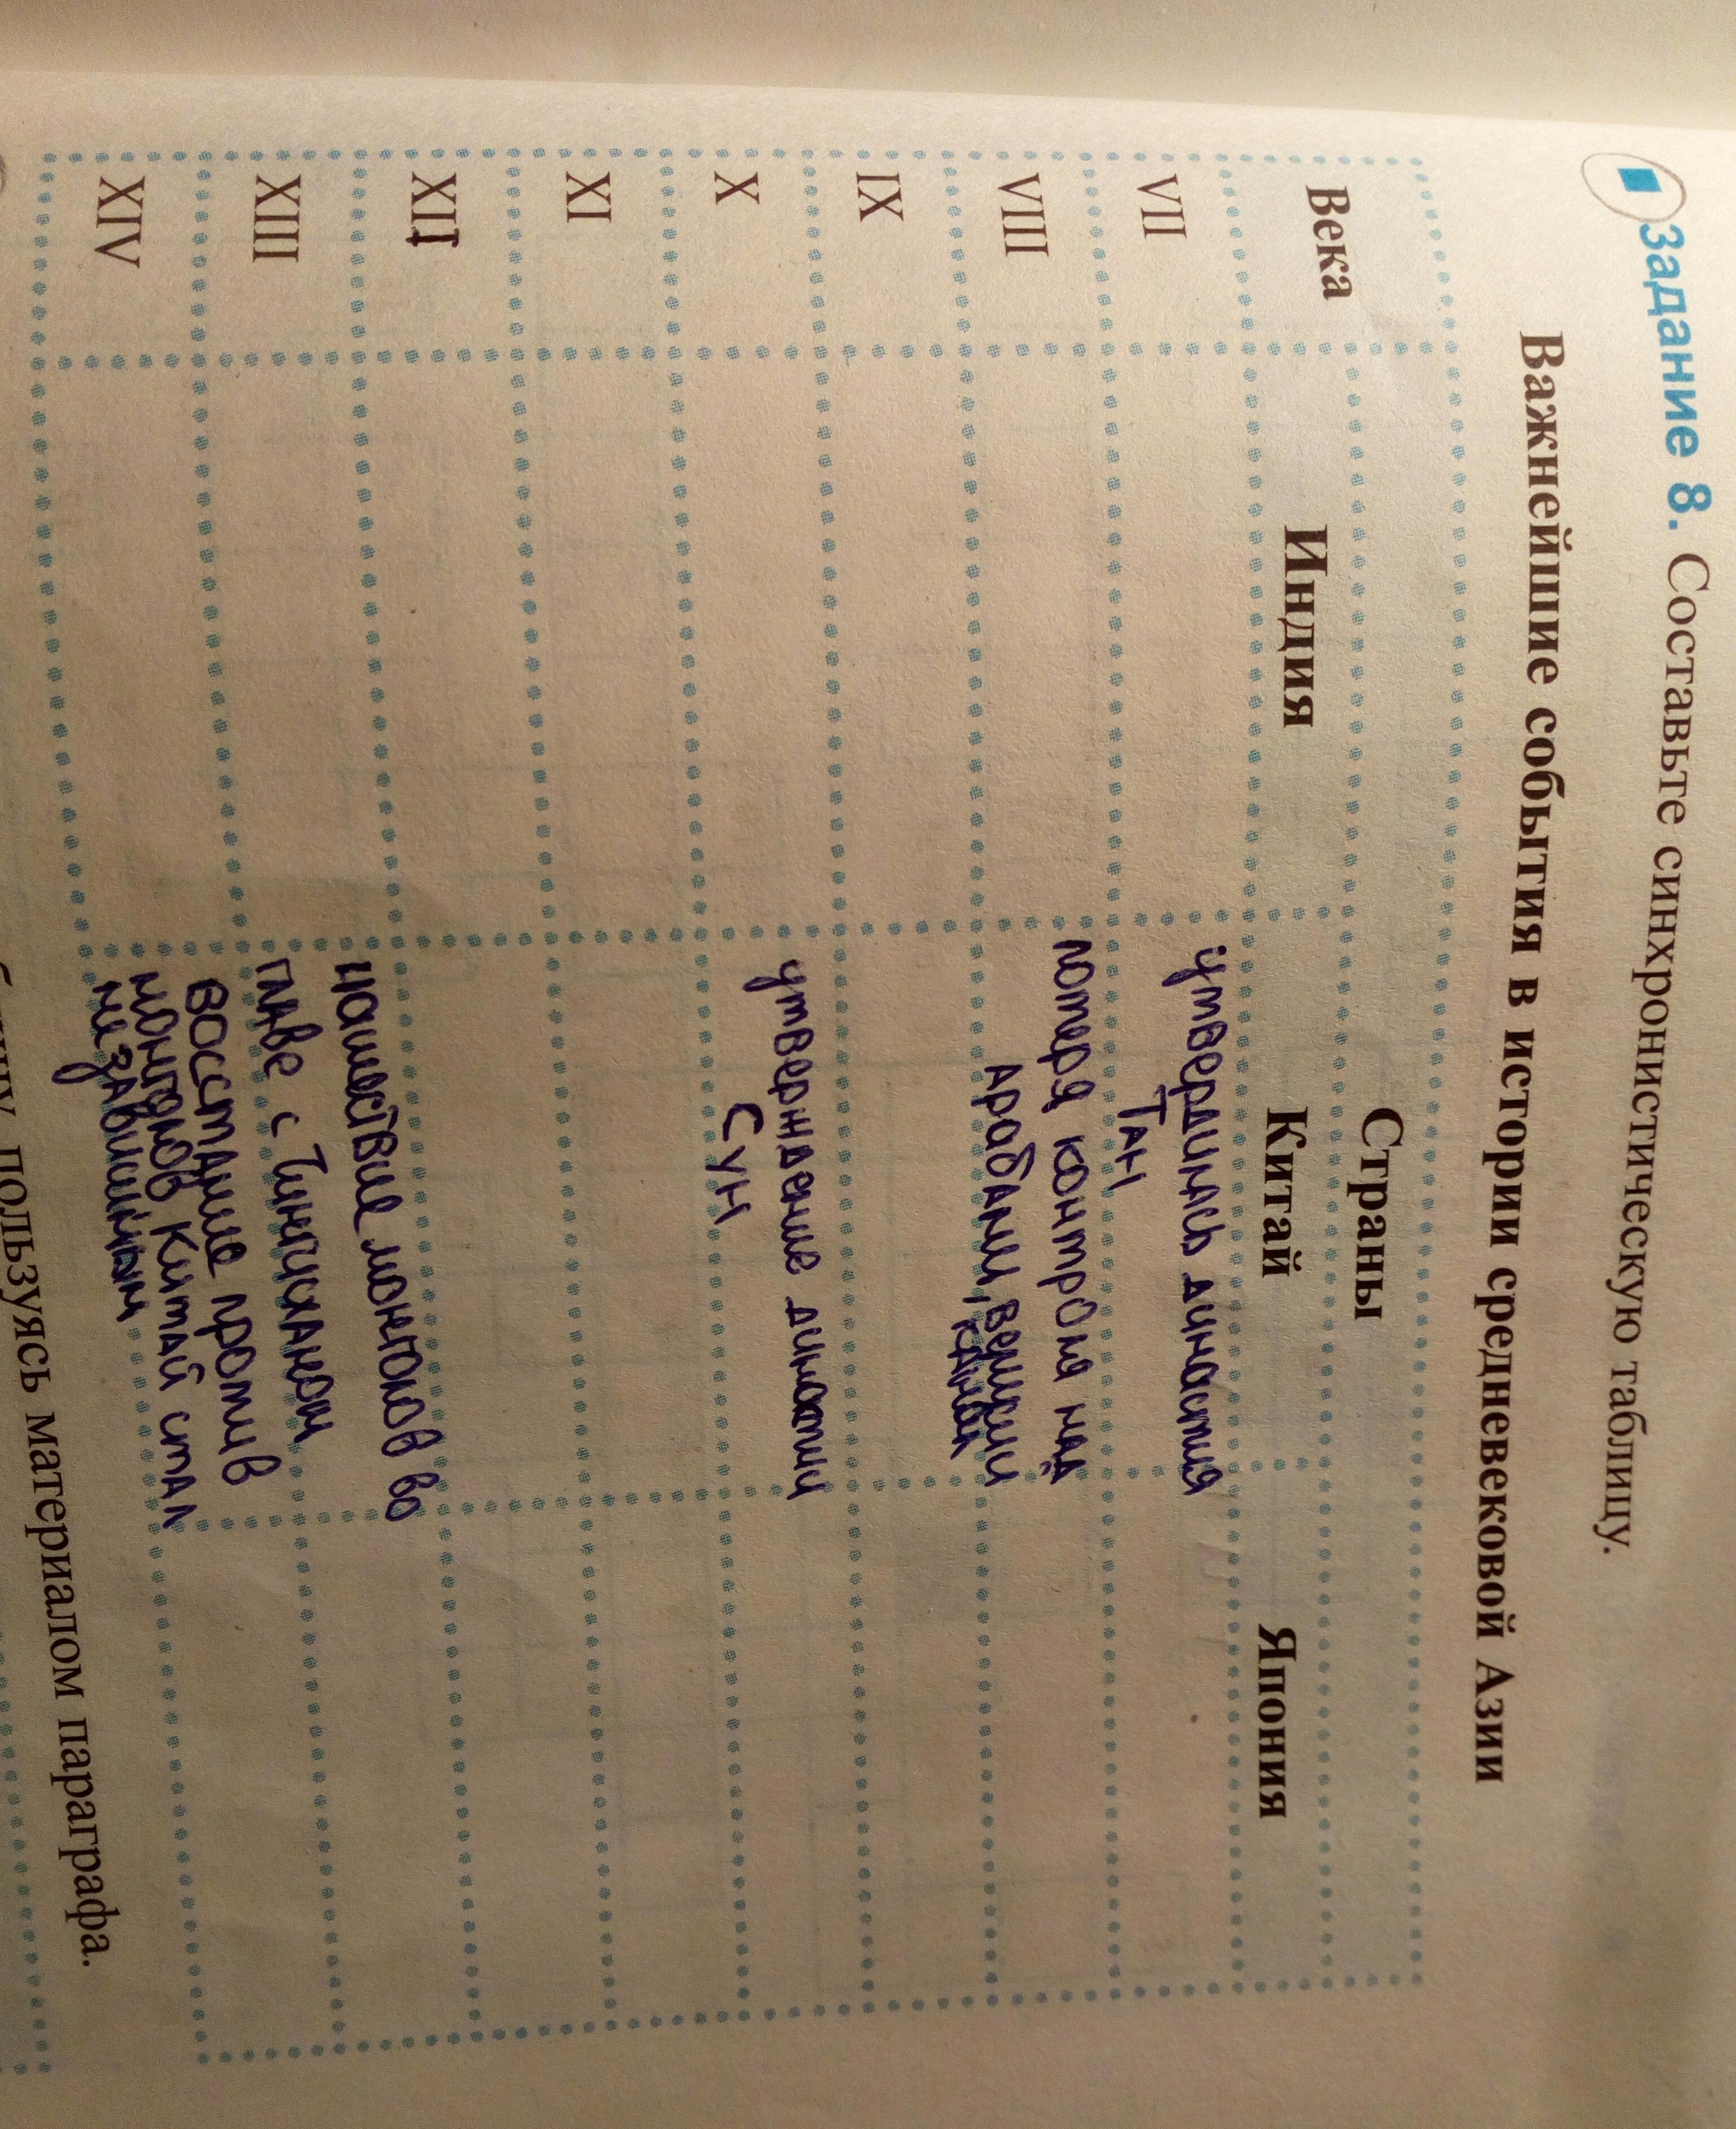 Задание 8. Составьте синхронистическую таблицу.
Важнейшие события в истории средневековой Азии
Века
Страны
Индия
Китай
Япония
VII
утвердилась династия
ТАН
VIII
потеря контроля над
арабами, великий
канал
IX
X
утверждение династии
СУН
XI
XII
XIII
нашествие монголов во
главе с Чингисханом
XIV
восстание против
монголов Китай стал
независимым
пользуясь материалом параграфа.